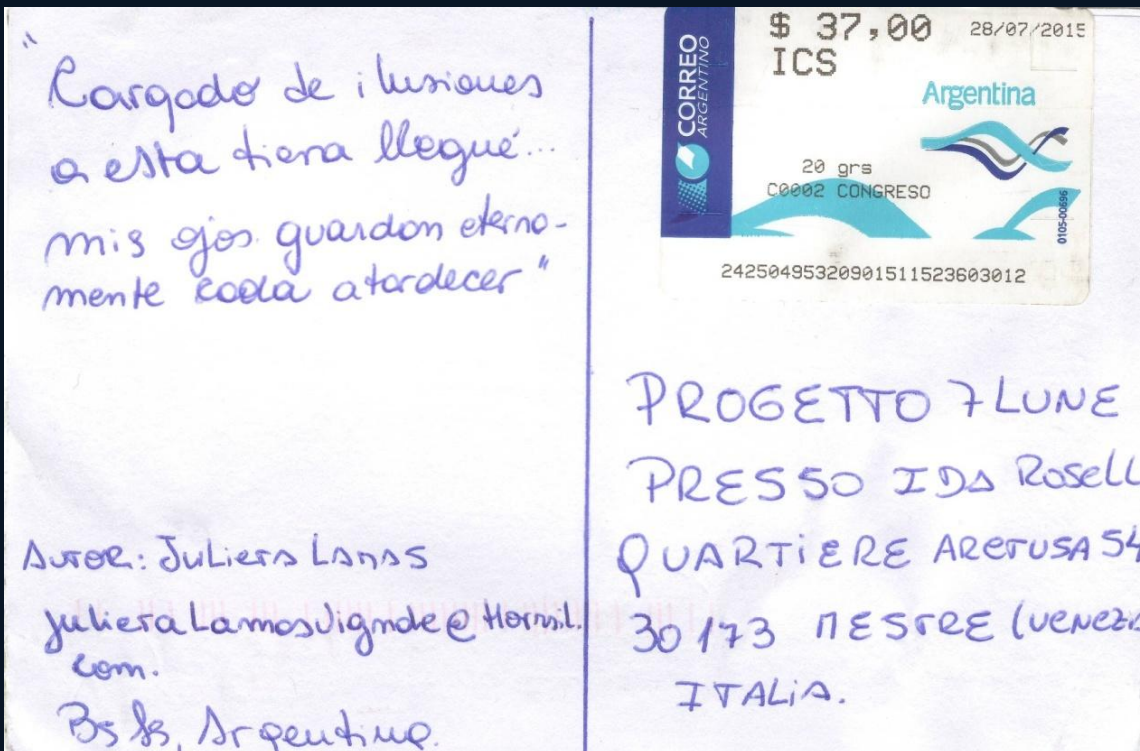 "Cargado de ilusiones
a esta tierra llegué...
mis ojos guardan eterna-
mente cada atardecer"
Autor: Julieta Lamas
julieta
com.
Bs As, Argentina.
CORREO
ARGENTINO
$ 37,00 28/07/2015
ICS
Argentina
20 grs
C0002 CONGRESO
0105-00696
24250495320901511523603012
PROGETTO 7 LUNE
PRESSO IDA ROSELL
QUARTIERE ARETUSA 54
30173 MESTRE (VENEZI
ITALIA.